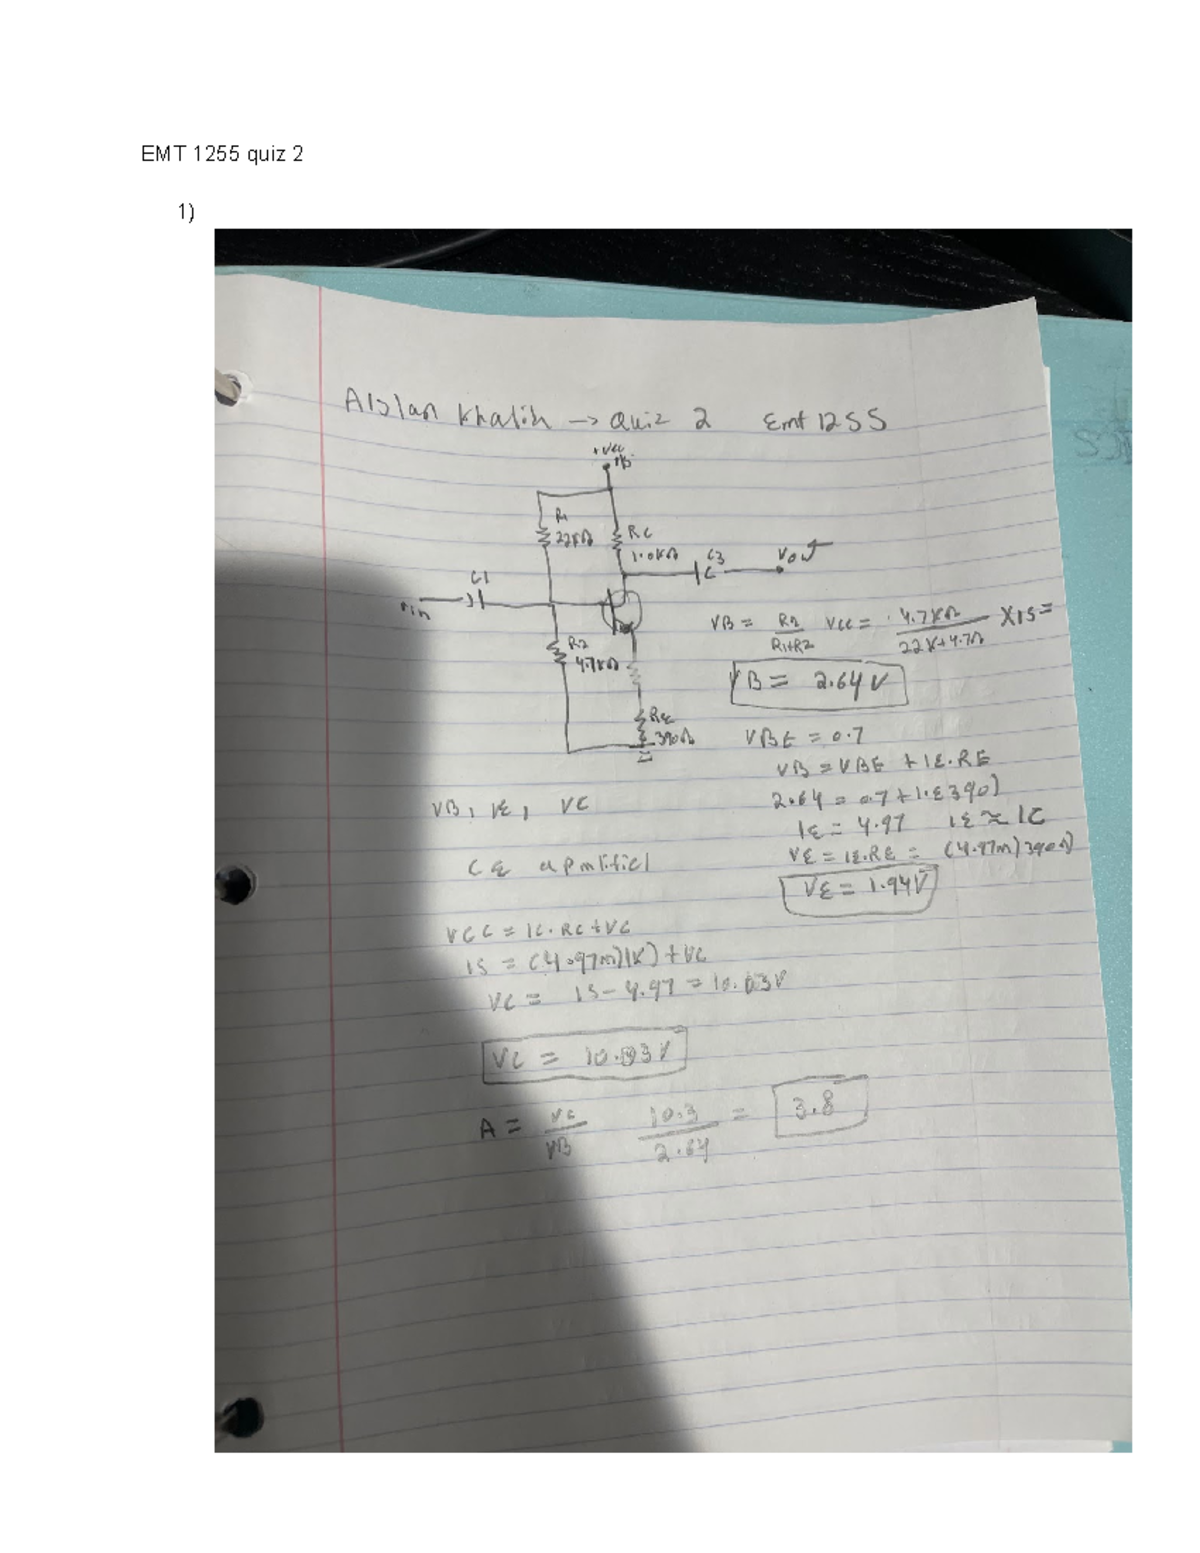 EMT 1255 quiz 2
1)
Khalid → Quiz 2 Emt 1255
+Vcc
15
R1
22KΩ
RC
1.0KΩ
C3
Vout
C1
Vin
R2
4.7KΩ
RE
390Ω
VB = R2/R1+R2 VCC = 4.7KΩ/22K+4.7Ω X15=
VB = 2.64V
VBE = 0.7
VB = VBE + IE.RE
2.64 = 0.7+IE390)
IE = 4.97 IE ≈ IC
VE = IE.RE = (4.97m)390Ω
VE = 1.94V
VB, IE, VC
CE
VCC = IC.RC+VC
15 = (4.97m)(1K)+VC
VC = 15-4.97=10.03V
VC = 10.03V
A = VC/VB 10.3/2.64 = 3.8